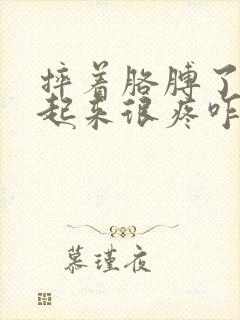 摔着胳膊了
起来很疼咋
慕瑾夜